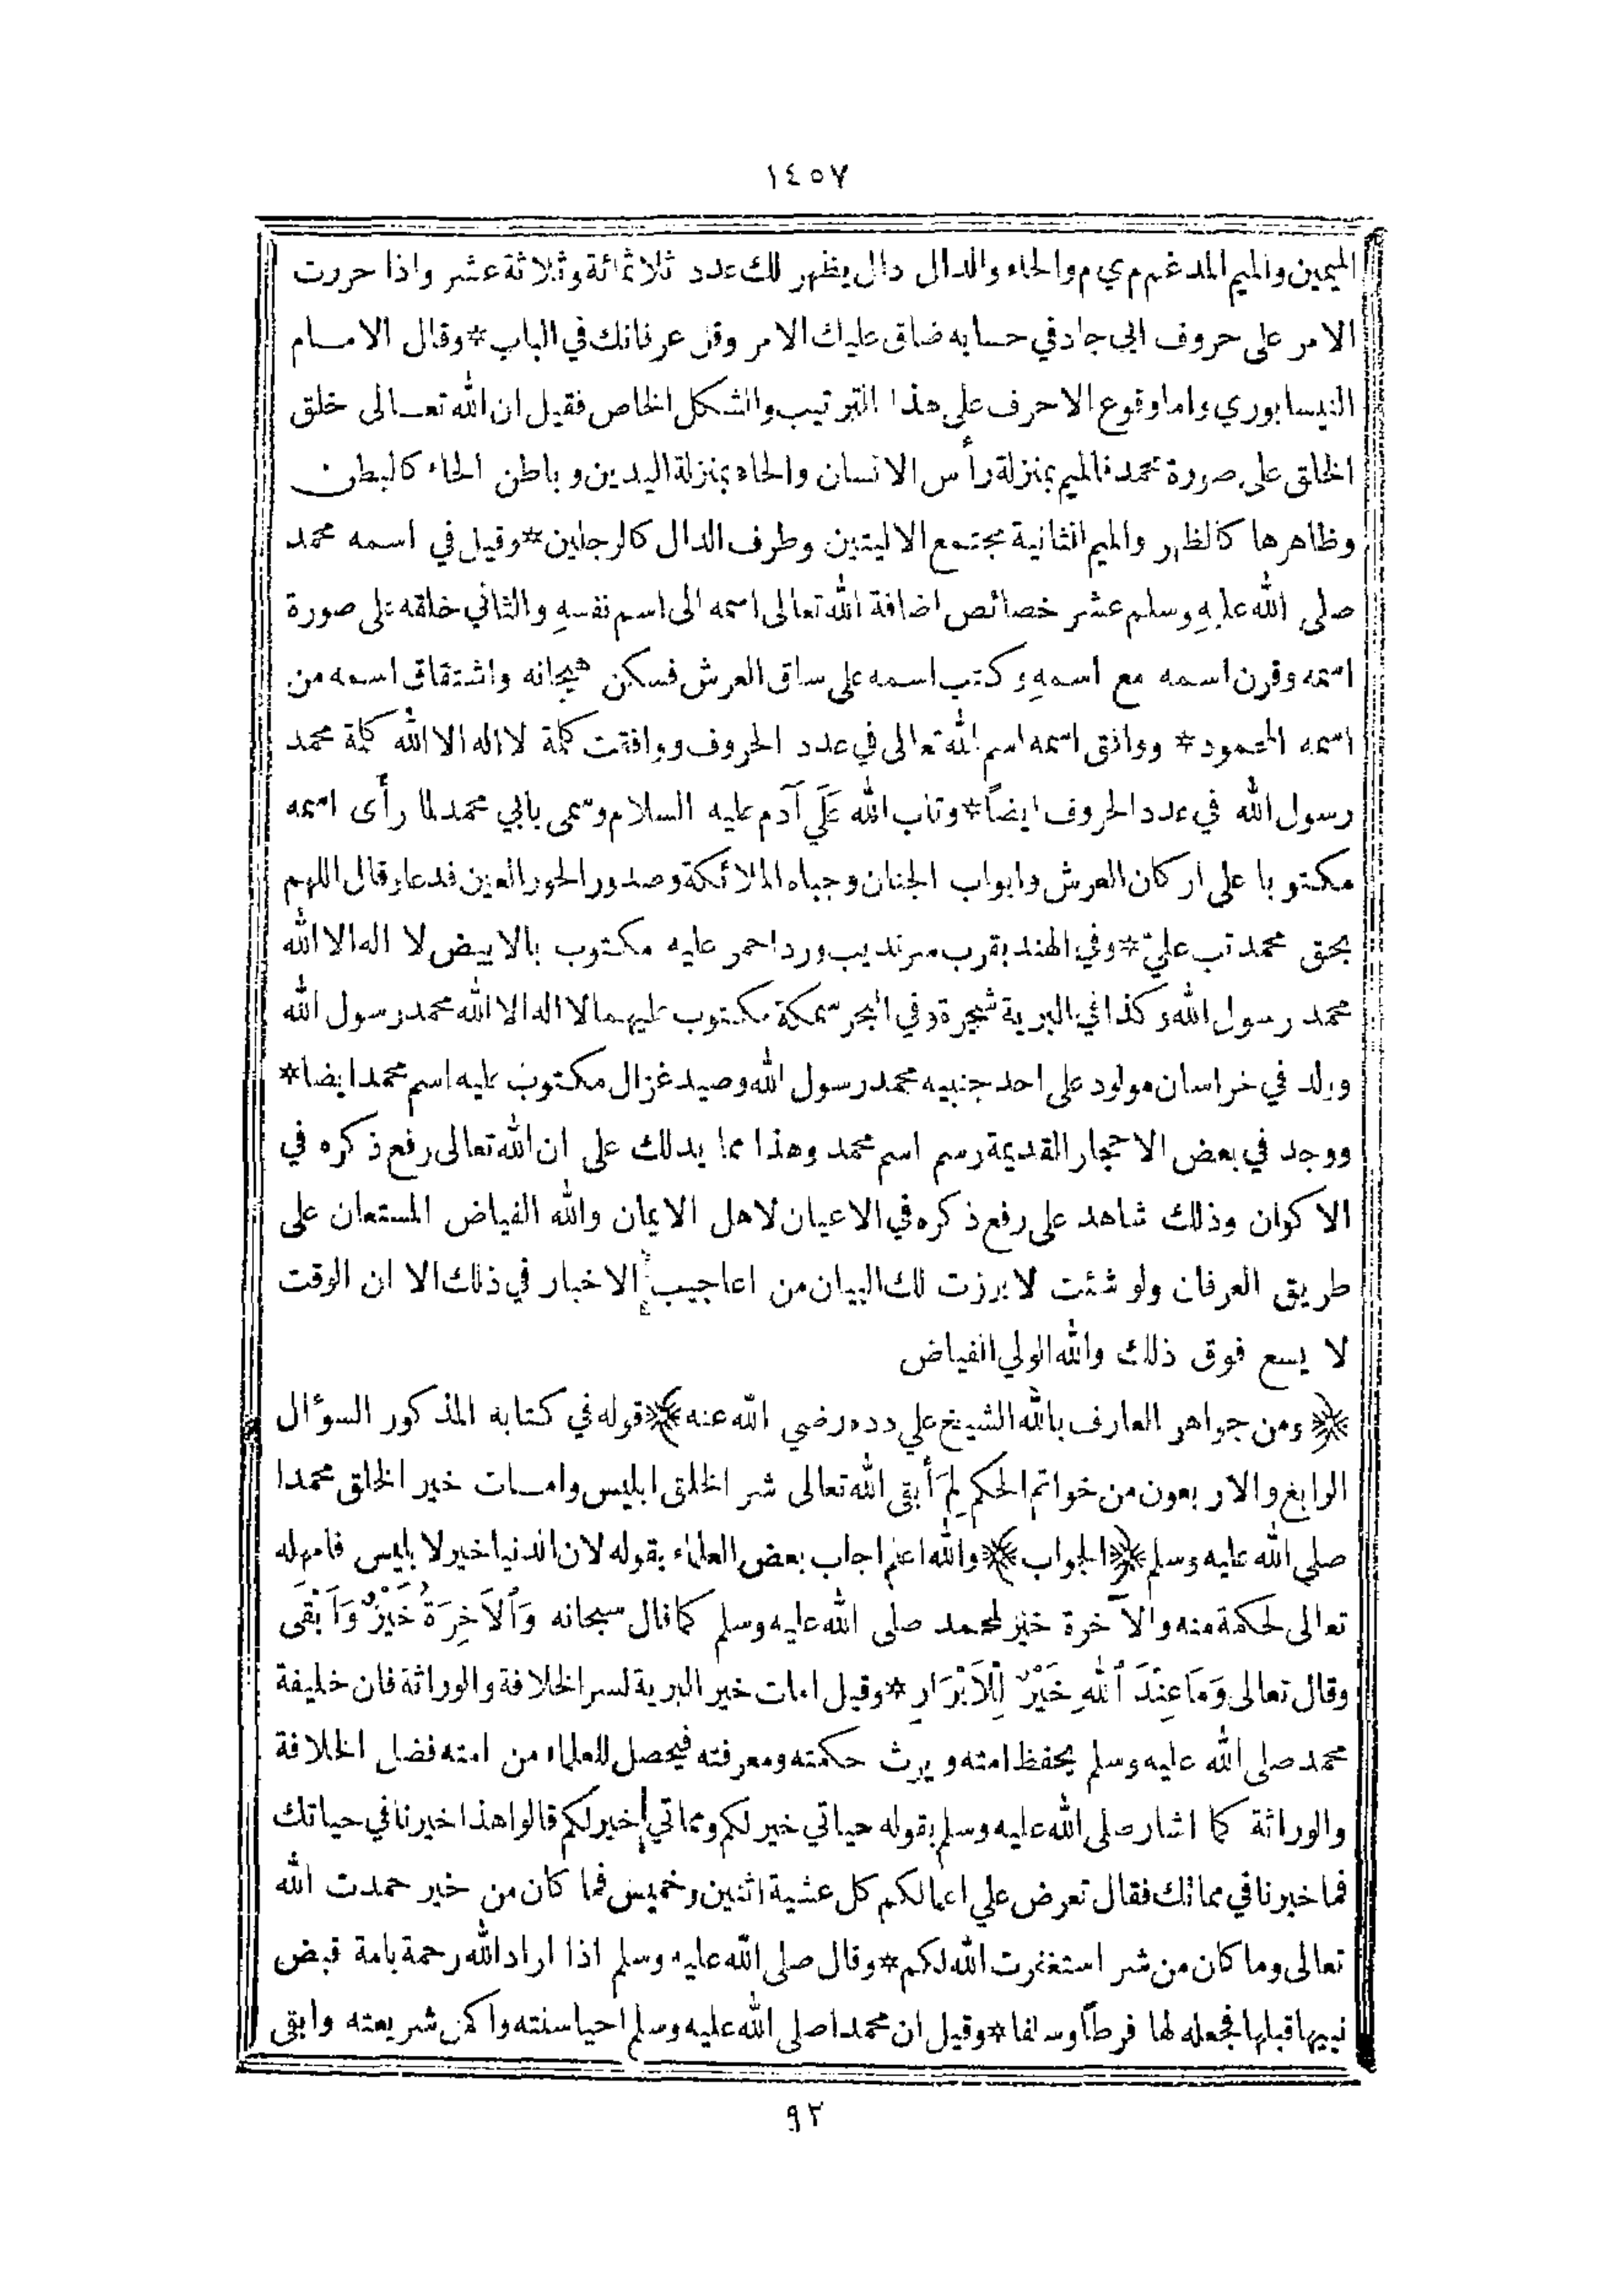 ١٤٥٧
الميمين والميم المدغم م ي م والحاء والدال دال يظهر لك عدد ثلاثمائة وثلاثة عشر واذا حررت
الامر على حروف ابي جاد في حسابه ضاق عليك الامر وقل عرفانك في الباب * وقال الامام
النيسابوري واما وقوع الاحرف على هذا الترتيب والشكل الخاص فقيل ان الله تعالى خلق
الخلق على صورة محمد فالميم بمنزلة رأس الانسان والحاء بمنزلة اليدين وباطن الحاء كالبطن
وظاهرها كالظهر والميم الثانية مجتمع الاليتين وطرف الدال كالرجلين * وقيل في اسمه محمد
صلى الله عليه وسلم عشر خصائص اضافة الله تعالى اسمه الى اسم نفسه والثاني خلقه على صورة
اسمه وقرن اسمه مع اسمه وكتب اسمه على ساق العرش فسكن هيجانه واشتقاق اسمه من
اسمه المحمود * ووافق اسمه اسم الله تعالى في عدد الحروف ووافقت كلمة لا اله الا الله كلمة محمد
رسول الله في عدد الحروف ايضاً * وتاب الله عَلَى آدم عليه السلام وسمى بابي محمد لما رأى اسمه
مكتوبا على اركان العرش وابواب الجنان وجباه الملائكة وصدور الحور العين فدعا وقال اللهم
بحق محمد تب عليّ * وفي الهند بقرب سرنديب ورد احمر عليه مكتوب بالابيض لا اله الا الله
محمد رسول الله وكذا في البرية شجرة وفي البحر سمكة مكتوب عليهما لا اله الا الله محمد رسول الله
وولد في خراسان مولود على احد جنبيه محمد رسول الله وصيد غزال مكتوب عليه اسم محمد ايضا *
ووجد في بعض الاحجار القديمة رسم اسم محمد وهذا مما يدلك على ان الله تعالى رفع ذكره في
الاكوان وذلك شاهد على رفع ذكره في الاعيان لاهل الايمان والله الفياض المستعان على
طريق العرفان ولو شئت لابرزت لك البيان من اعاجيب الاخبار في ذلك الا ان الوقت
لا يسع فوق ذلك والله الولي الفياض
﴿ ومن جواهر العارف بالله الشيخ علي دده رضي الله عنه ﴾ قوله في كتابه المذكور السؤال
الرابع والاربعون من خواتم الحكم لِمَ أبقى الله تعالى شر الخلق ابليس وامات خير الخلق محمدا
صلى الله عليه وسلم ﴿ الجواب ﴾ والله اعلم اجاب بعض العلماء بقوله لان الدنيا خير لابليس فامهله
تعالى لحكمة منه والآخرة خير لمحمد صلى الله عليه وسلم كما قال سبحانه وَٱلْآخِرَةُ خَيْرٌ وَأَبْقَى
وقال تعالى وَمَا عِنْدَ ٱللهِ خَيْرٌ لِلْأَبْرَارِ * وقيل امات خير البرية لسر الخلافة والوراثة فان خليفة
محمد صلى الله عليه وسلم يحفظ امته ويرث حكمته ومعرفته فيحصل للعلماء من امته فضل الخلافة
والوراثة كما اشار صلى الله عليه وسلم بقوله حياتي خير لكم ومماتي خير لكم قالوا هذا خيرنا في حياتك
فما خيرنا في مماتك فقال تعرض علي اعمالكم كل عشية اثنين وخميس فما كان من خير حمدت الله
تعالى وما كان من شر استغفرت الله لكم * وقال صلى الله عليه وسلم اذا اراد الله رحمة بامة قبض
نبيها قبلها فجعله لها فرطاً وسلفا * وقيل ان محمدا صلى الله عليه وسلم احيا سنته واكمل شريعته وابقى
٩٢